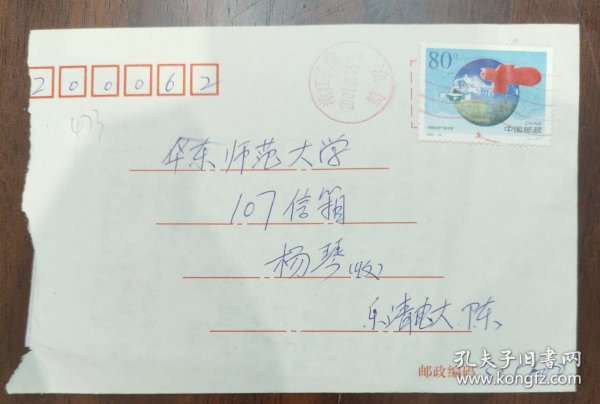 200062
473
80分
CHINA
中国邮政
华东师范大学
107信箱
杨琴(收)
乐清电大 陈
邮政编码
孔夫子旧书网
www.kongfz.com